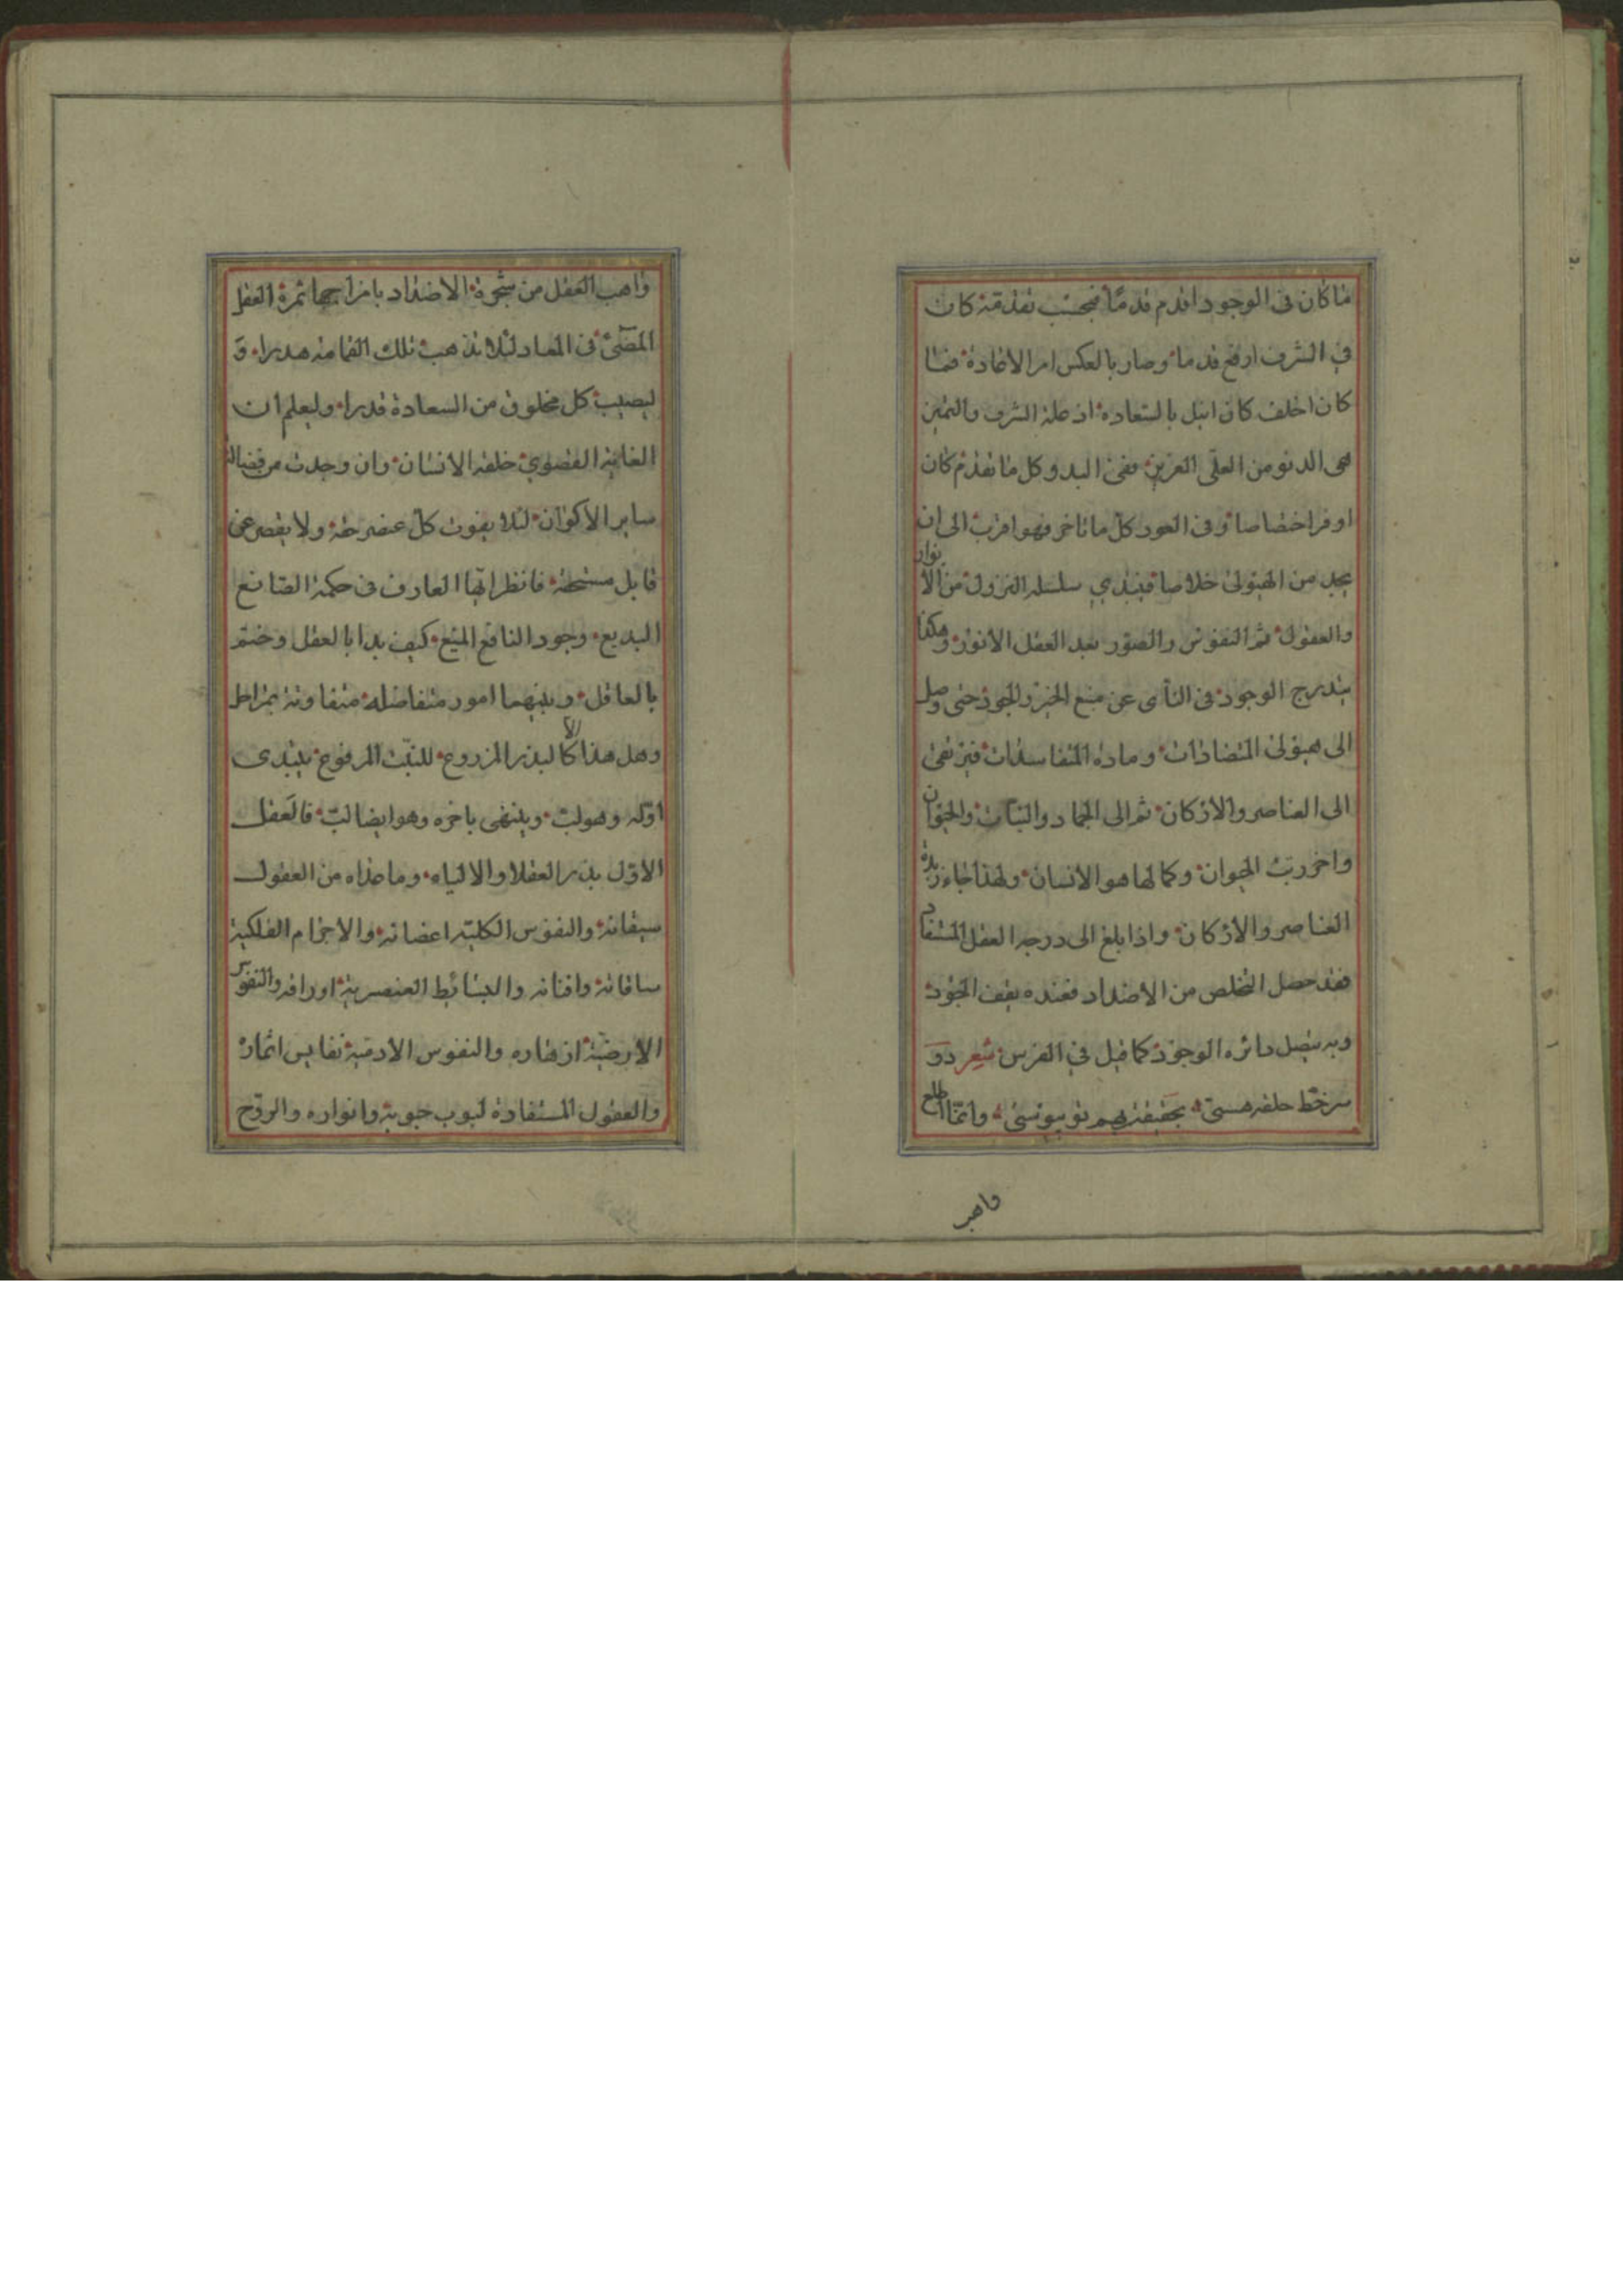 ما كان فى الوجود اقدم قدمًا فبحسب تقدمه كان
فى الشرف ارفع قدما وصار بالعكس امر الاعادة فما
كان اخلف كان انبل بالسعادة اذ علة الشرف والتميز
هى الدنو من العلى العزيز ففى البدو كل ما تقدم كان
اوفر اختصاصا وفى العود كل ما تاخر فهو اقرب الى ان
يجد من الهيولى خلاصا فيبتدي سلسله النزول من الانوار
والعقول ثم النفوس والصور بعد العقل الانور وهكذا
يتدرج الوجود فى النأى عن منبع الخير والجود حتى وصل
الى هيولى المتضادات وماده المتفاسدات فيرتقى
الى العناصر والاركان ثم الى الجماد والنبات والحيوان
واخر رتب الحيوان وكمالها هو الانسان ولهذا جاء زبدة
العناصر والاركان واذا بلغ الى درجه العقل المستفاد
فقد حصل التخلص من الاضداد فعنده يقف الجود
وبه يتصل دائره الوجود كما قيل فى الفرس شعر دو
سر خط حلقه هستى بحقيقت بهم تو پيوستى وانما اطلع
واهب
واهب العقل من شجرة الاضداد بامزاجها ثمرة العقل
المضئ فى المعاد لئلا يذهب تلك القمامه هدرا و
ليصيب كل مخلوق من السعادة قدرا وليعلم ان
الغايه القصوي خلقه الانسان وان وجدت من فضالته
ساير الاكوان لئلا يفوت كل عنصر حقه ولا يقصر عن
قابل مستحقه فانظر ايها العارف فى حكمة الصانع
البديع وجود النافع المنيع كيف بدا بالعقل وختم
بالعاقل وبينهما امور متفاضله متفاوتة بمراحل
وهل هذا الا كالبذر المزروع للنبت المرفوع يبتدى
اوله وهو لب وينتهى باخره وهو ايضا لب فالعقل
الاول بذر العقلا والالباء وما عداه من العقول
سيقانه والنفوس الكليه اغصانه والاجرام الفلكية
ساقاته وافنانه والبسائط العنصرية اوراقه والنفوس
الارضية ازهاره والنفوس الادمية نفايس اثماره
والعقول المستفادة لبوب حبوبه وانواره والروح